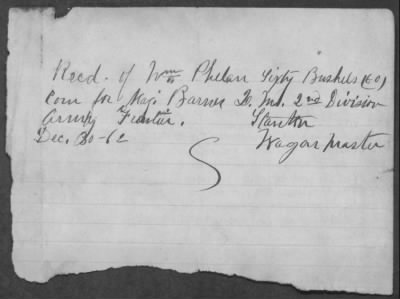 Recd. of Wm Phelan Sixty Bushels (60)
Corn for Maj. Barnes Q. M. 2nd Division
Army Frontier. Stanton
Dec. 30-62 Wagon Master